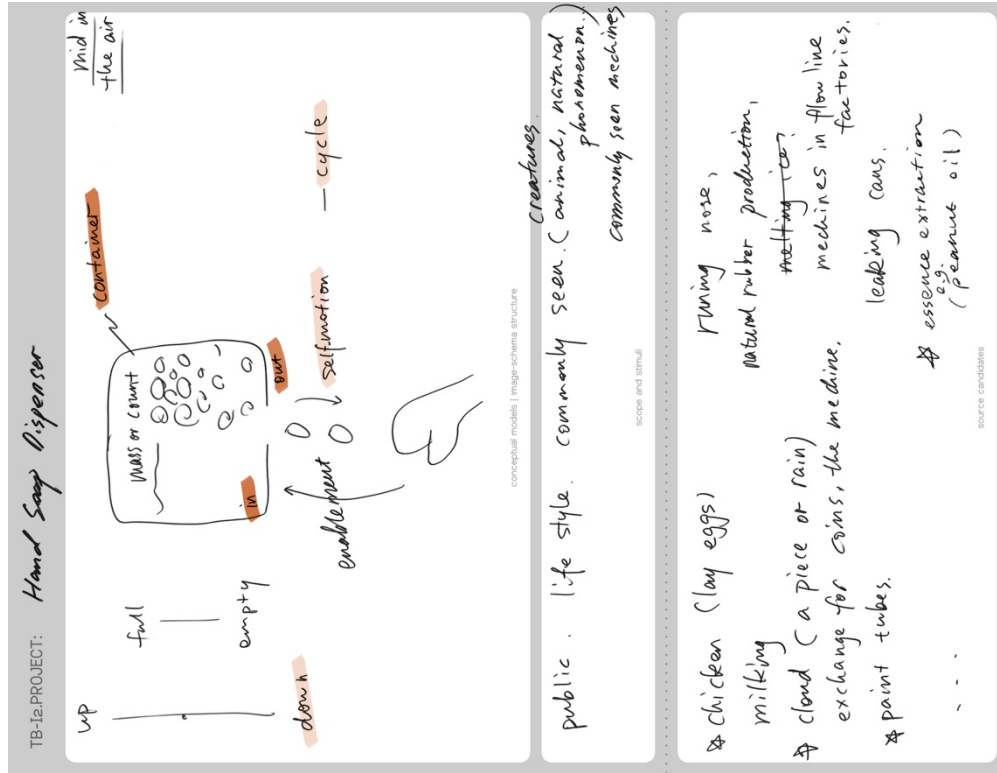 TB-I2.PROJECT: Hand Soap Dispenser
mid in
the air
container
mass or count
in
out
up
down
full
empty
enablement
self.motion
cycle
conceptual models | image-schema structure
public. life style. commonly seen. (animal, natural
creatures.
phenomenon..)
commonly seen mechines
scope and stimuli
chicken (lay eggs)
milking
cloud (a piece or rain)
exchange for coins, the medine.
paint tubes.
. . . .
runing nose,
natural rubber production,
melting ice,
mechines in flow line
factories.
leaking cans.
essence extraction
e.g.
(peanut oil)
source candidates